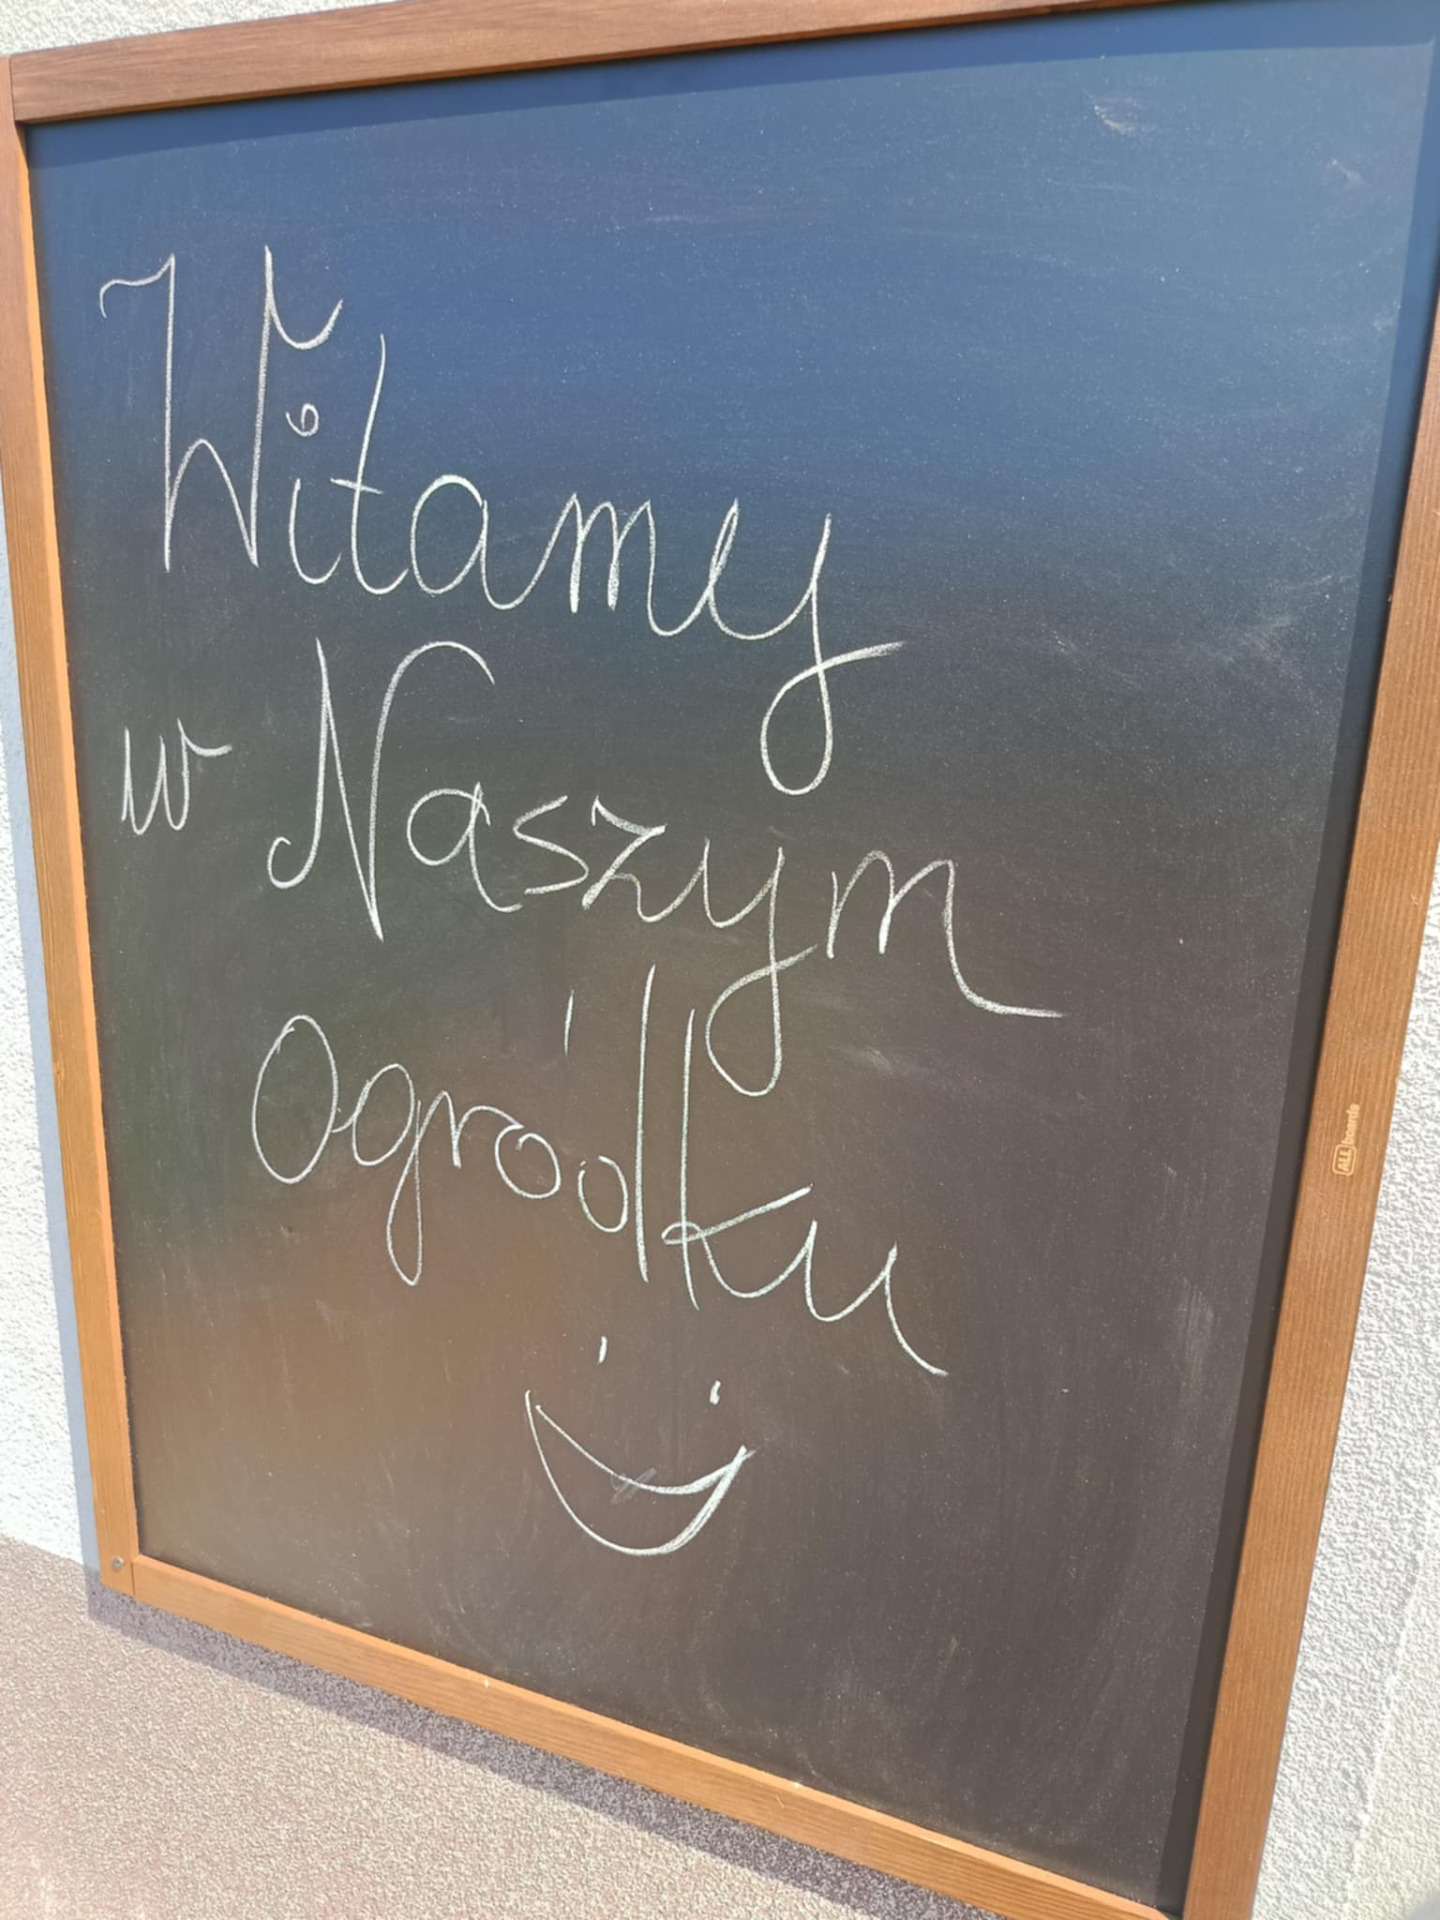 Witamy
w Naszym
Ogródku
ALLboards